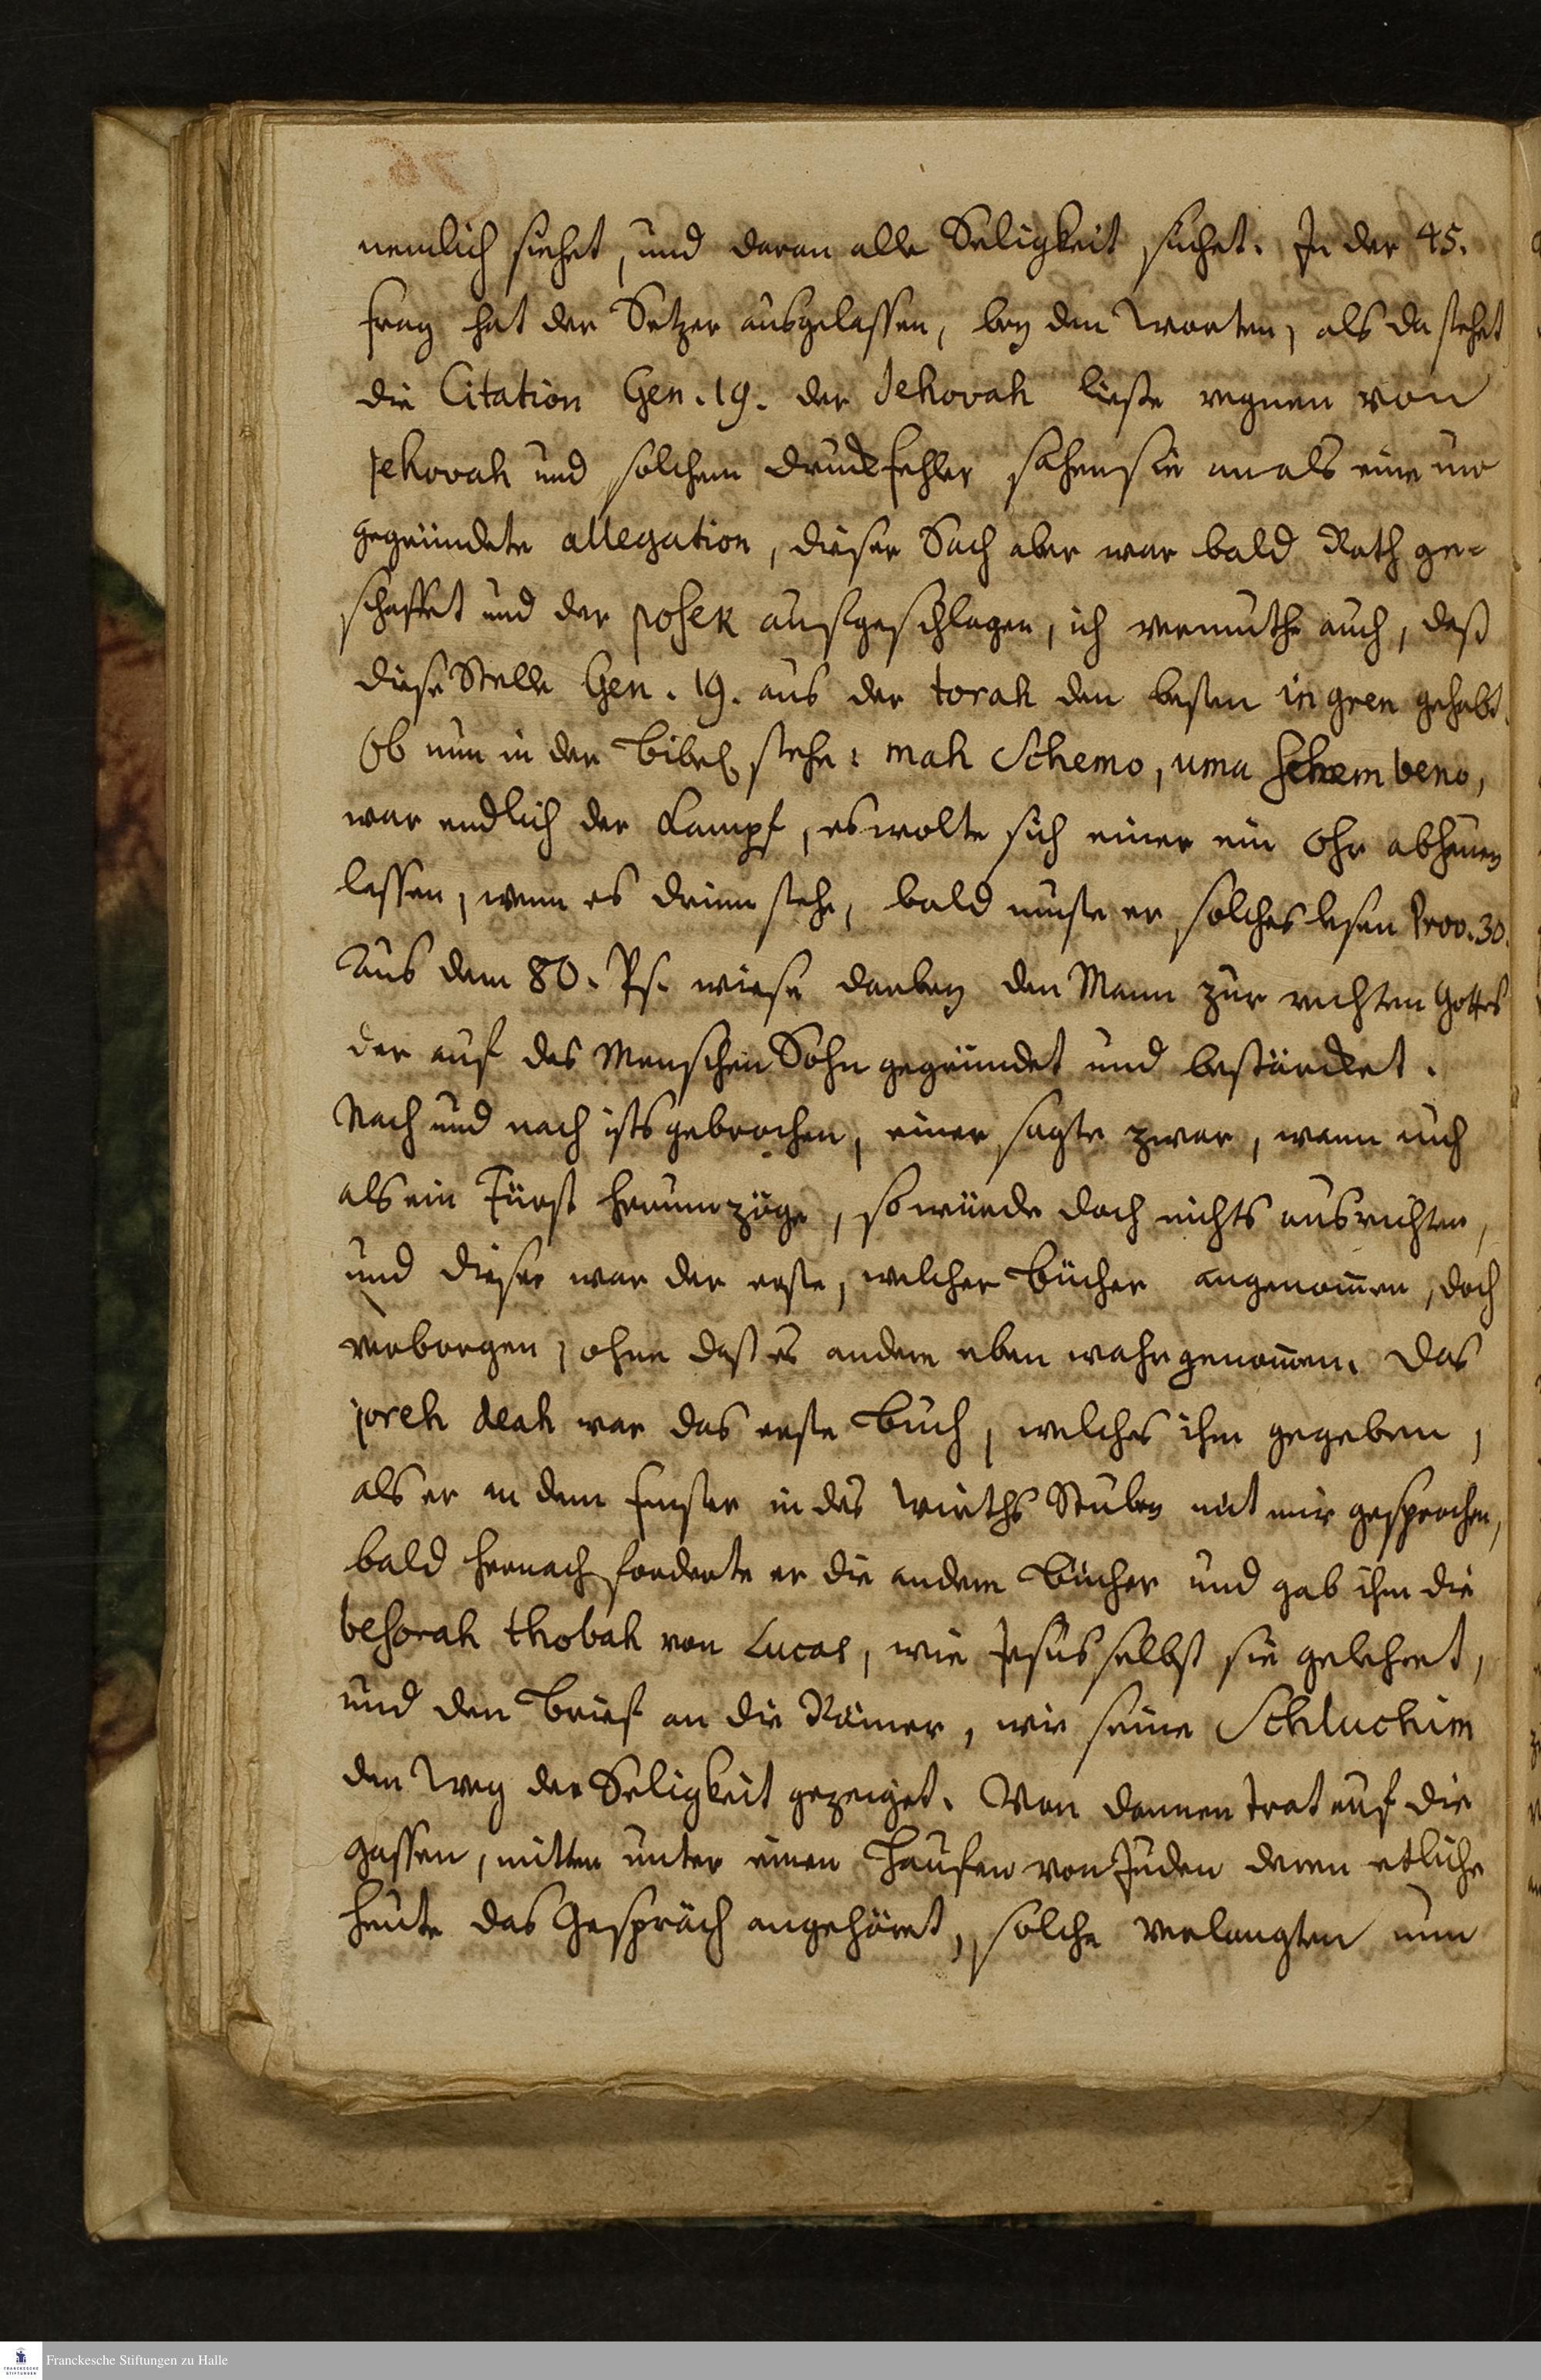 nemlich siehet, und daran alle Seligkeit suchet. In der 45.
frag hat der Setzer ausgelaßen, bey den Worten, als da stehet
die Citation Gen. 19. der Jehovah ließe regnen von
Jehovah und solchem druckfehler sahen sie an als eine un
gegründete allegation, dieser Sach aber war bald Rath ge-
schaffet und der posek aufgeschlagen, ich vermuthe auch, daß
diese Stelle Gen. 19. aus der torah den besten ingren gehabt.
Ob nun in der Bibel stehe: mah Schemo, uma schem beno,
war endlich der Kampf, es wolte sich einer ein Ohr abhauen
laßen, wenn es drinn stehe, bald muste er solches lesen Prov. 30.
Aus dem 80. Ps. wiese darbey den Mann zur rechten Gottes
der auf des Menschen Sohn gegründet und bestärcket.
Nach und nach ists gebrochen, einer sagte zwar, wann auch
als ein Fürst herumzöge, so würde doch nichts ausrichten,
und dieser war der erste, welcher Bücher angenom̅en, doch
verborgen, ohne daß es andere eben wahrgenom̅en. Das
joreh deah war das erste Buch, welches ihm gegeben,
als er an dem Fenster in des Wirths Stuben mit mir gesprochen,
bald hernach forderte er die andern Bücher und gab ihm die
besorah thobah von Lucas, wie Jesus selbst sie gelehret,
und den Brief an die Römer, wie seine Schluchim
den Weg der Seligkeit gezeiget. Von dannen trat auf die
Gaßen, mitten unter einen Haufen von Juden deren etliche
heute das Gespräch angehöret, solche verlangten nun
Franckesche Stiftungen zu Halle